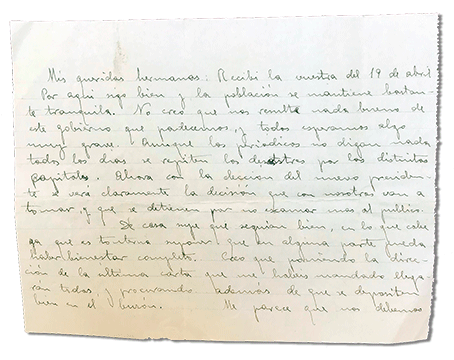 Mis queridas hermanas: Recibí la vuestra del 19 de abril
Por aquí sigo bien y la población se mantiene bastan-
te tranquila. No creo que nos resulte nada bueno de
este gobierno que padecemos, y todos esperamos algo
muy grave. Aunque los periodicos no digan nada
todos los dias se repiten los desastres por las distintas
capitales. Ahora con la eleccion del nuevo presiden-
te se verá claramente la decisión que con nosotros van a
tomar, y que se detienen por no alarmar mas al público.
De casa supe que seguian bien, en lo que cabe
ya que es tonteria suponer que en alguna parte pueda
haber bienestar completo. Creo que poniendo la direc-
ción de la ultima carta que me habeis mandado llega-
rán todas y procurando además de que se depositen
bien en el buzón. Me parece que nos debemos